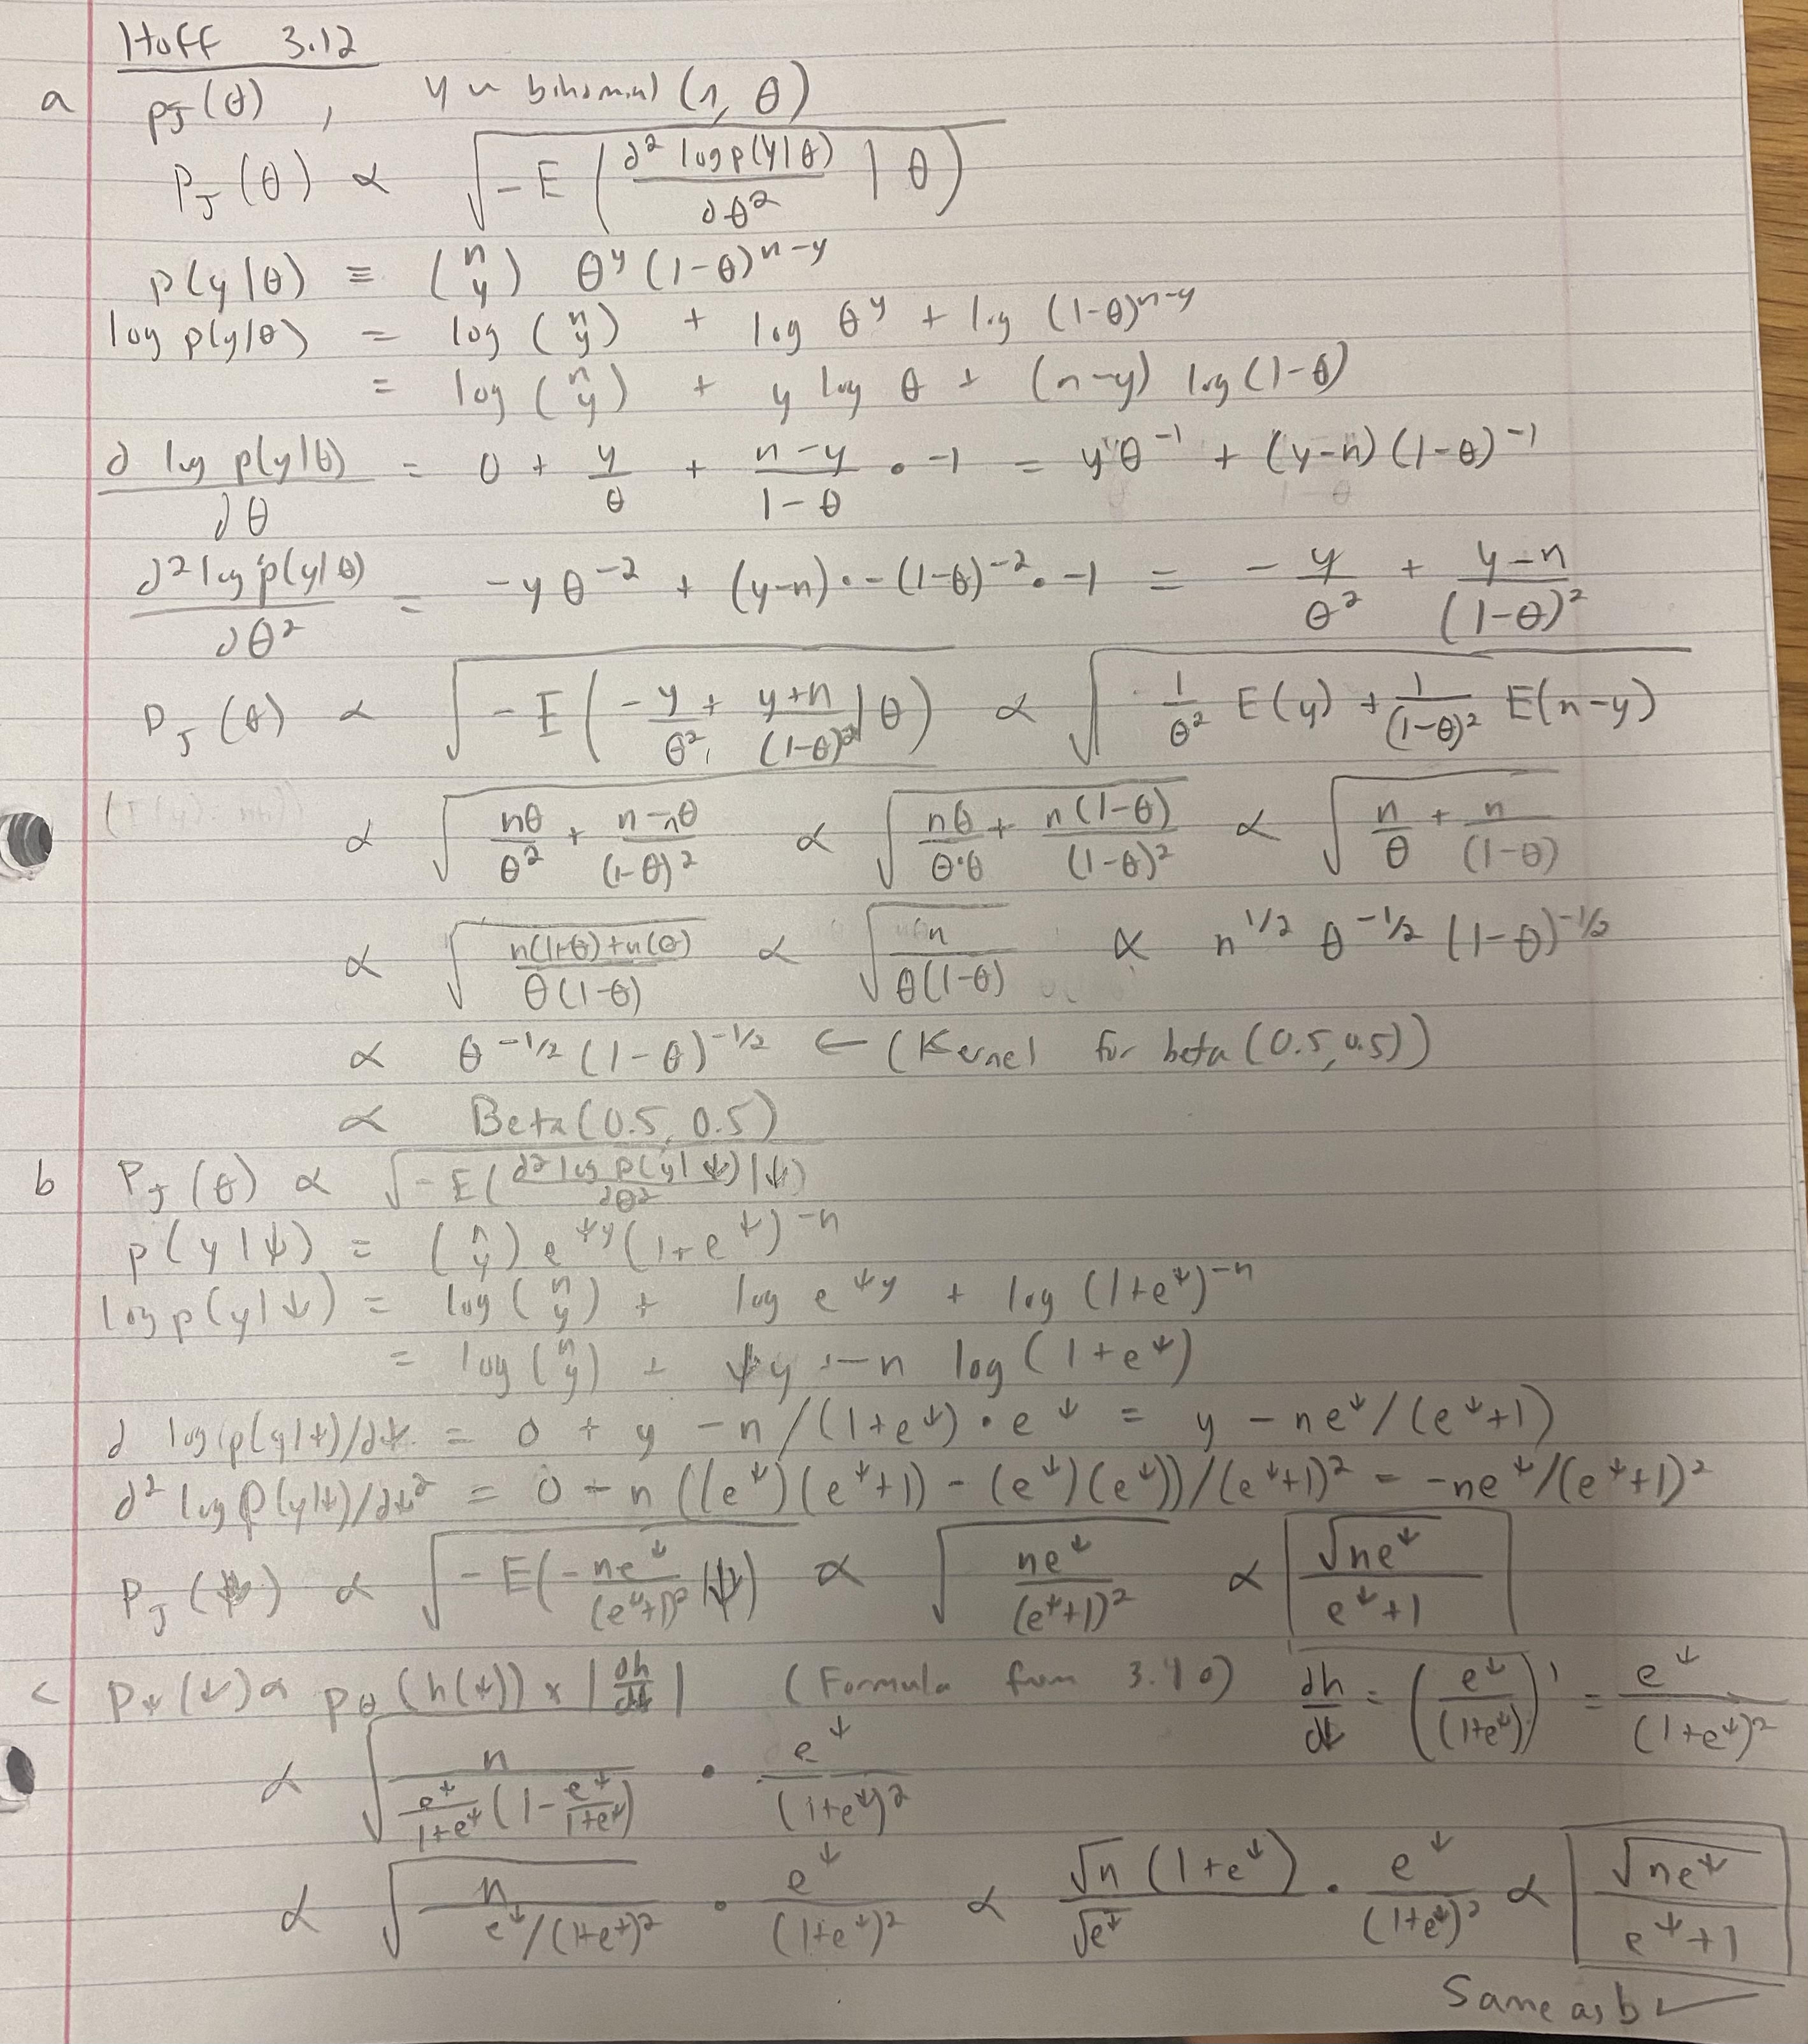 Hoff 3.12
a p_J(θ), y ~ binomial (n, θ)
P_J(θ) ∝ √(-E(∂² log p(y|θ)/∂θ² | θ))
p(y|θ) = (n y) θ^y (1-θ)^{n-y}
log p(y|θ) = log (n y) + log θ^y + log (1-θ)^{n-y}
= log (n y) + y log θ + (n-y) log (1-θ)
∂ log p(y|θ)/∂θ = 0 + y/θ + (n-y)/(1-θ) · -1 = yθ^{-1} + (y-n)(1-θ)^{-1}
∂² log p(y|θ)/∂θ² = -yθ^{-2} + (y-n)·-(1-θ)^{-2}·-1 = -y/θ² + (y-n)/(1-θ)²
P_J(θ) ∝ √(-E(-y/θ² + (y+n)/(1-θ)² | θ)) ∝ √(1/θ² E(y) + 1/(1-θ)² E(n-y))
∝ √(nθ/θ² + (n-nθ)/(1-θ)²) ∝ √(nθ/(θ·θ) + n(1-θ)/(1-θ)²) ∝ √(n/θ + n/(1-θ))
∝ √((n(1-θ)+n(θ))/(θ(1-θ))) ∝ √(n/(θ(1-θ))) ∝ n^{1/2} θ^{-1/2} (1-θ)^{-1/2}
∝ θ^{-1/2} (1-θ)^{-1/2} ← (Kernel for beta(0.5, 0.5))
∝ Beta(0.5, 0.5)
b P_J(θ) ∝ √(-E(∂² log p(y|ψ)/∂θ² | ψ))
p(y|ψ) = (n y) e^{ψy} (1+e^ψ)^{-n}
log p(y|ψ) = log (n y) + log e^{ψy} + log (1+e^ψ)^{-n}
= log (n y) + ψy + -n log (1+e^ψ)
∂ log(p(y|ψ)/∂ψ = 0 + y - n/(1+e^ψ)·e^ψ = y - ne^ψ/(e^ψ+1)
∂² log p(y|ψ)/∂ψ² = 0 - n((e^ψ)(e^ψ+1) - (e^ψ)(e^ψ))/(e^ψ+1)² = -ne^ψ/(e^ψ+1)²
P_J(ψ) ∝ √(-E(-ne^ψ/(e^ψ+1)² | ψ)) ∝ √(ne^ψ/(e^ψ+1)²) ∝ √(ne^ψ)/(e^ψ+1)
c P_ψ(ψ) ∝ p_θ(h(ψ)) × |dh/dψ| (Formula from 3.10) dh/dψ = (e^ψ/(1+e^ψ))' = e^ψ/(1+e^ψ)²
∝ √(n/(e^ψ/(1+e^ψ) (1 - e^ψ/(1+e^ψ)))) · e^ψ/(1+e^ψ)²
∝ √(n/(e^ψ/(1+e^ψ)²)) · e^ψ/(1+e^ψ)² ∝ √n (1+e^ψ)/√e^ψ · e^ψ/(1+e^ψ)² ∝ √(ne^ψ)/(e^ψ+1)
Same as b ✓